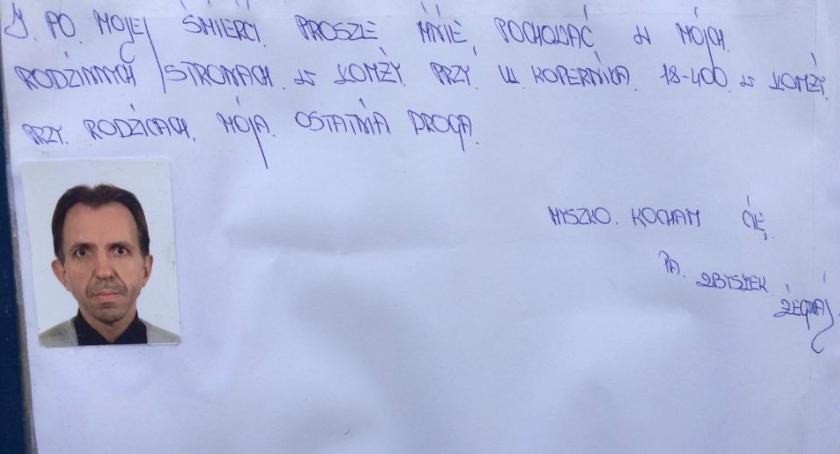 I. PO. MOJEJ ŚMIERCI. PROSZE MNIE POCHOWAĆ W MÓICH.
RODZINNYCH STRONACH. W ŁOMŻY. PRZY. Ul. KOPERNIKA. 18-400. W ŁOMŻY.
PRZY. RODZICACH. MÓJA. OSTATNIA DROGA.
MYSZKO. KOCHAM CIĘ.
PA. ZBYSZEK
ŻEGNAJ